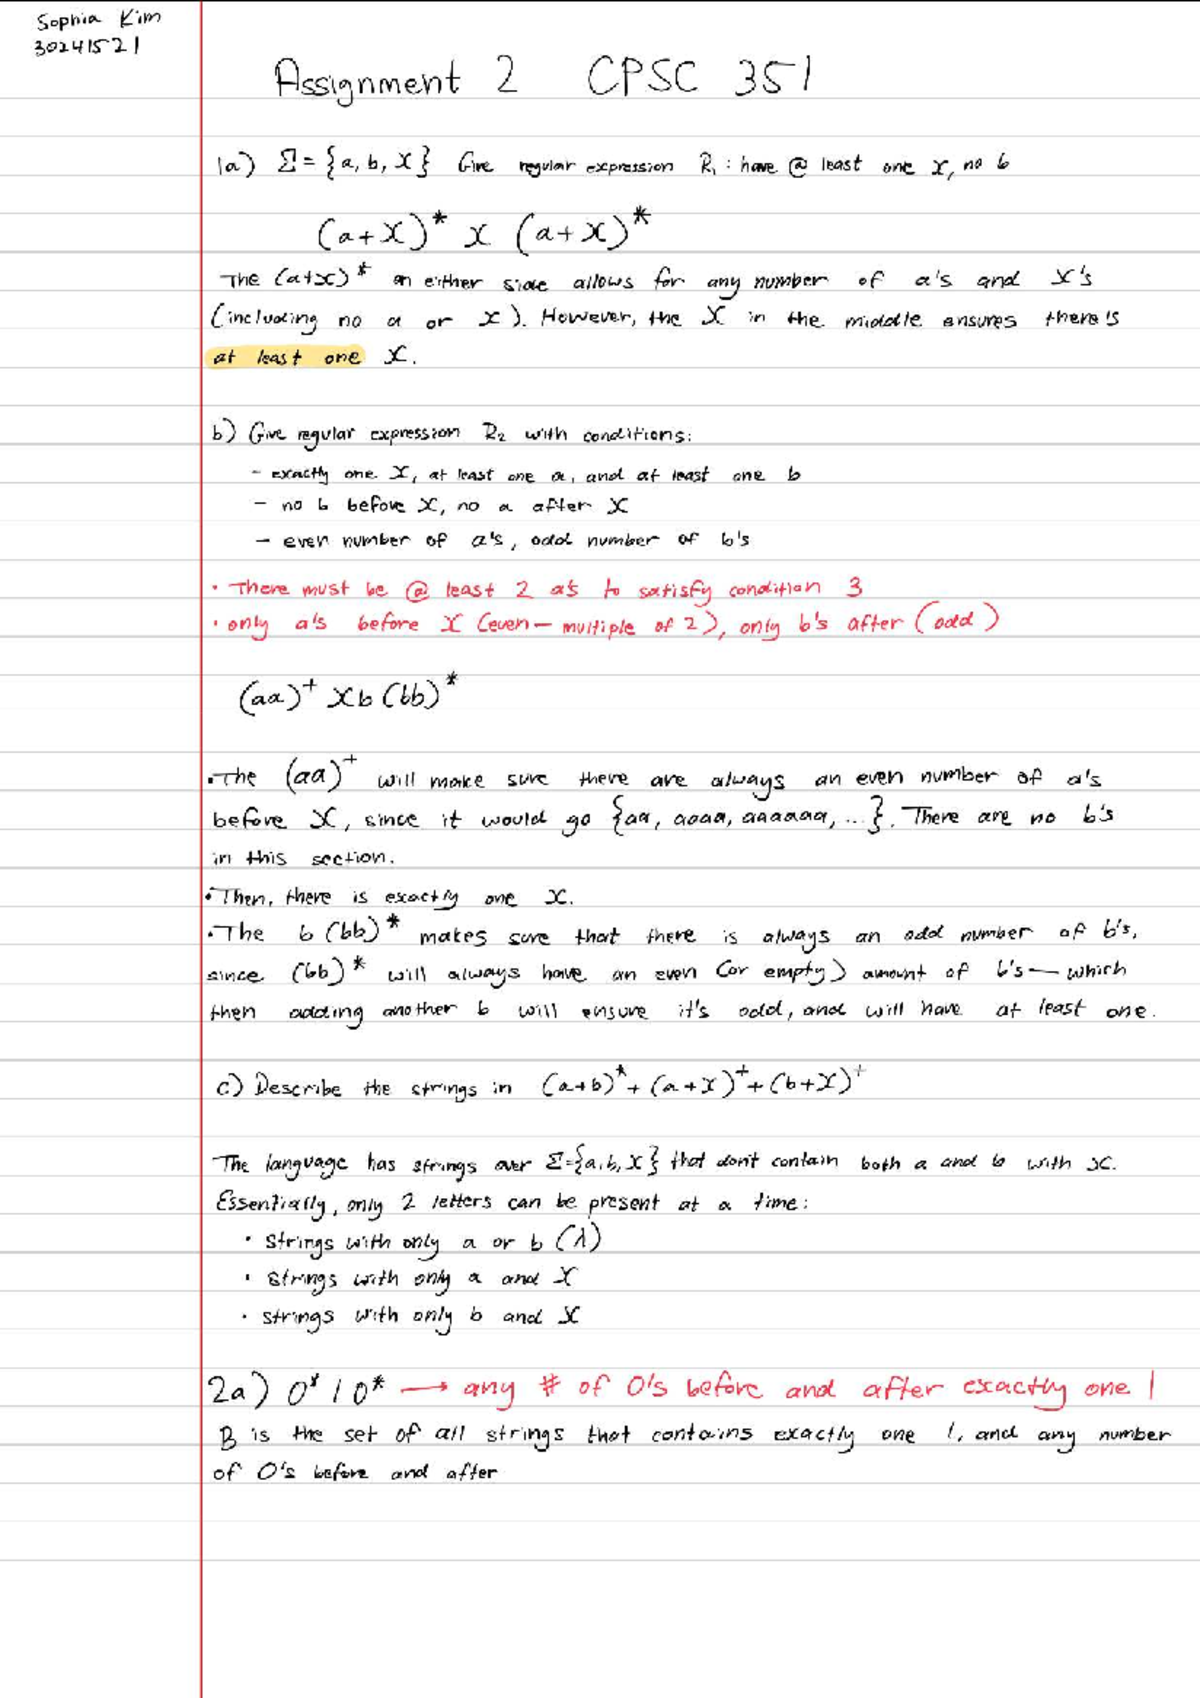 Sophia Kim
30241521
Assignment 2 CPSC 351
1a) Σ = {a, b, x} Give regular expression R₁ : have @ least one x, no b
(a+x)* x (a+x)*
The (a+x)* on either side allows for any number of a's and x's
(including no a or x). However, the x in the middle ensures there's
at least one x.
b) Give regular expression R₂ with conditions:
- exactly one x, at least one a, and at least one b
- no b before x, no a after x
- even number of a's, odd number of b's
• There must be @ least 2 a's to satisfy condition 3
• only a's before x (even - multiple of 2), only b's after (odd)
(aa)⁺ xb (bb)*
• The (aa)⁺ will make sure there are always an even number of a's
before x, since it would go {aa, aaaa, aaaaaa, ...}. There are no b's
in this section.
• Then, there is exactly one x.
• The b (bb)* makes sure that there is always an odd number of b's,
since (bb)* will always have an even (or empty) amount of b's — which
then adding another b will ensure it's odd, and will have at least one.
c) Describe the strings in (a+b)* + (a+x)⁺ + (b+x)⁺
The language has strings over Σ={a,b,x} that don't contain both a and b with x.
Essentially, only 2 letters can be present at a time:
• strings with only a or b (λ)
• strings with only a and x
• strings with only b and x
2a) 0* 1 0* → any # of 0's before and after exactly one 1
B is the set of all strings that contains exactly one 1, and any number
of 0's before and after